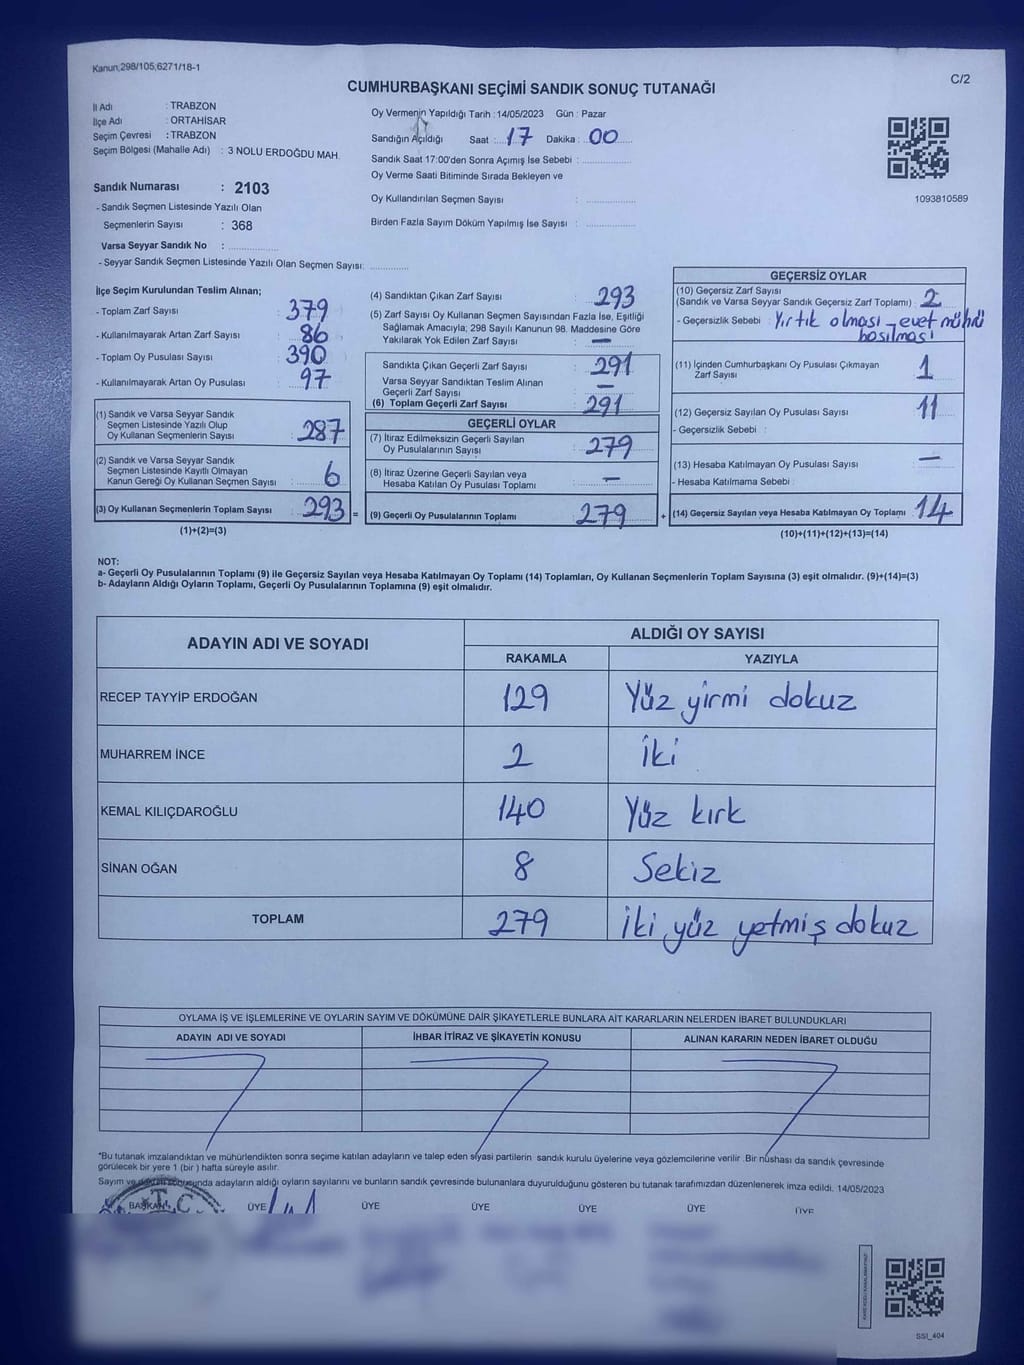 Kanun;298/105,6271/18-1
C/2
CUMHURBAŞKANI SEÇİMİ SANDIK SONUÇ TUTANAĞI
İl Adı : TRABZON
İlçe Adı : ORTAHİSAR
Seçim Çevresi : TRABZON
Seçim Bölgesi (Mahalle Adı) : 3 NOLU ERDOĞDU MAH.
Sandık Numarası : 2103
- Sandık Seçmen Listesinde Yazılı Olan
Seçmenlerin Sayısı : 368
Varsa Seyyar Sandık No :
- Seyyar Sandık Seçmen Listesinde Yazılı Olan Seçmen Sayısı:
Oy Vermenin Yapıldığı Tarih :14/05/2023 Gün : Pazar
Sandığın Açıldığı Saat : 17 Dakika : 00
Sandık Saat 17:00'den Sonra Açımış İse Sebebi :
Oy Verme Saati Bitiminde Sırada Bekleyen ve
Oy Kullandırılan Seçmen Sayısı :
Birden Fazla Sayım Döküm Yapılmış İse Sayısı :
1093810589
İlçe Seçim Kurulundan Teslim Alınan;
- Toplam Zarf Sayısı : 379
- Kullanılmayarak Artan Zarf Sayısı : 86
- Toplam Oy Pusulası Sayısı : 390
- Kullanılmayarak Artan Oy Pusulası : 97
(1) Sandık ve Varsa Seyyar Sandık
Seçmen Listesinde Yazılı Olup
Oy Kullanan Seçmenlerin Sayısı : 287
(2) Sandık ve Varsa Seyyar Sandık
Seçmen Listesinde Kayıtlı Olmayan
Kanun Gereği Oy Kullanan Seçmen Sayısı : 6
(3) Oy Kullanan Seçmenlerin Toplam Sayısı : 293 =
(1)+(2)=(3)
(4) Sandıktan Çıkan Zarf Sayısı : 293
(5) Zarf Sayısı Oy Kullanan Seçmen Sayısından Fazla İse, Eşitliği
Sağlamak Amacıyla; 298 Sayılı Kanunun 98. Maddesine Göre
Yakılarak Yok Edilen Zarf Sayısı : —
Sandıkta Çıkan Geçerli Zarf Sayısı : 291
Varsa Seyyar Sandıktan Teslim Alınan
Geçerli Zarf Sayısı : —
(6) Toplam Geçerli Zarf Sayısı : 291
GEÇERLİ OYLAR
(7) İtiraz Edilmeksizin Geçerli Sayılan
Oy Pusulalarının Sayısı : 279
(8) İtiraz Üzerine Geçerli Sayılan veya
Hesaba Katılan Oy Pusulası Toplamı : —
(9) Geçerli Oy Pusulalarının Toplamı : 279 +
GEÇERSİZ OYLAR
(10) Geçersiz Zarf Sayısı
(Sandık ve Varsa Seyyar Sandık Geçersiz Zarf Toplamı) : 2
- Geçersizlik Sebebi : Yırtık olması - evet mührü
basılması
(11) İçinden Cumhurbaşkanı Oy Pusulası Çıkmayan
Zarf Sayısı : 1
(12) Geçersiz Sayılan Oy Pusulası Sayısı : 11
- Geçersizlik Sebebi :
(13) Hesaba Katılmayan Oy Pusulası Sayısı : —
- Hesaba Katılmama Sebebi :
(14) Geçersiz Sayılan veya Hesaba Katılmayan Oy Toplamı : 14
(10)+(11)+(12)+(13)=(14)
NOT:
a- Geçerli Oy Pusulalarının Toplamı (9) ile Geçersiz Sayılan veya Hesaba Katılmayan Oy Toplamı (14) Toplamları, Oy Kullanan Seçmenlerin Toplam Sayısına (3) eşit olmalıdır. (9)+(14)=(3)
b- Adayların Aldığı Oyların Toplamı, Geçerli Oy Pusulalarının Toplamına (9) eşit olmalıdır.
ADAYIN ADI VE SOYADI
ALDIĞI OY SAYISI
RAKAMLA YAZIYLA
RECEP TAYYİP ERDOĞAN 129 Yüz yirmi dokuz
MUHARREM İNCE 2 İki
KEMAL KILIÇDAROĞLU 140 Yüz kırk
SİNAN OĞAN 8 Sekiz
TOPLAM 279 İki yüz yetmiş dokuz
OYLAMA İŞ VE İŞLEMLERİNE VE OYLARIN SAYIM VE DÖKÜMÜNE DAİR ŞİKAYETLERLE BUNLARA AİT KARARLARIN NELERDEN İBARET BULUNDUKLARI
ADAYIN ADI VE SOYADI İHBAR İTİRAZ VE ŞİKAYETİN KONUSU ALINAN KARARIN NEDEN İBARET OLDUĞU
*Bu tutanak imzalandıktan ve mühürlendikten sonra seçime katılan adayların ve talep eden siyasi partilerin sandık kurulu üyelerine veya gözlemcilerine verilir .Bir nüshası da sandık çevresinde
görülecek bir yere 1 (bir ) hafta süreyle asılır.
Sayım ve döküm sonucunda adayların aldığı oyların sayılarını ve bunların sandık çevresinde bulunanlara duyurulduğunu gösteren bu tutanak tarafımızdan düzenlenerek imza edildi. 14/05/2023
T.C
BAŞKAN ÜYE ÜYE ÜYE ÜYE ÜYE ÜYE
SSI_404